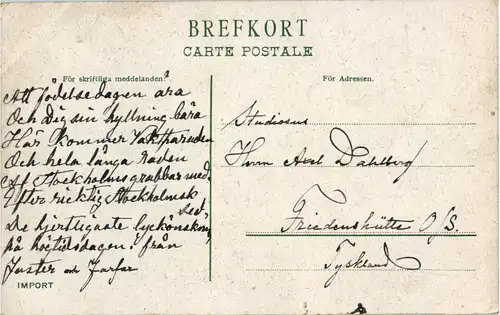 BREFKORT
CARTE POSTALE
För skriftliga meddelanden.
För Adressen.
Att födelsedagen ära
Och Dig sin hyllning bära
Här kommer Vaktparaden
Och hela långa raden
Af Stockholmsgrabbar med
Efter riktig Stockholmsk
sed.
De hjertligaste lyckönskning
på högtidsdagen från
Faster och Farfar
IMPORT
Studiosus
Herrn Axel Dahlberg
Friedenshütte O/S.
Tyskland